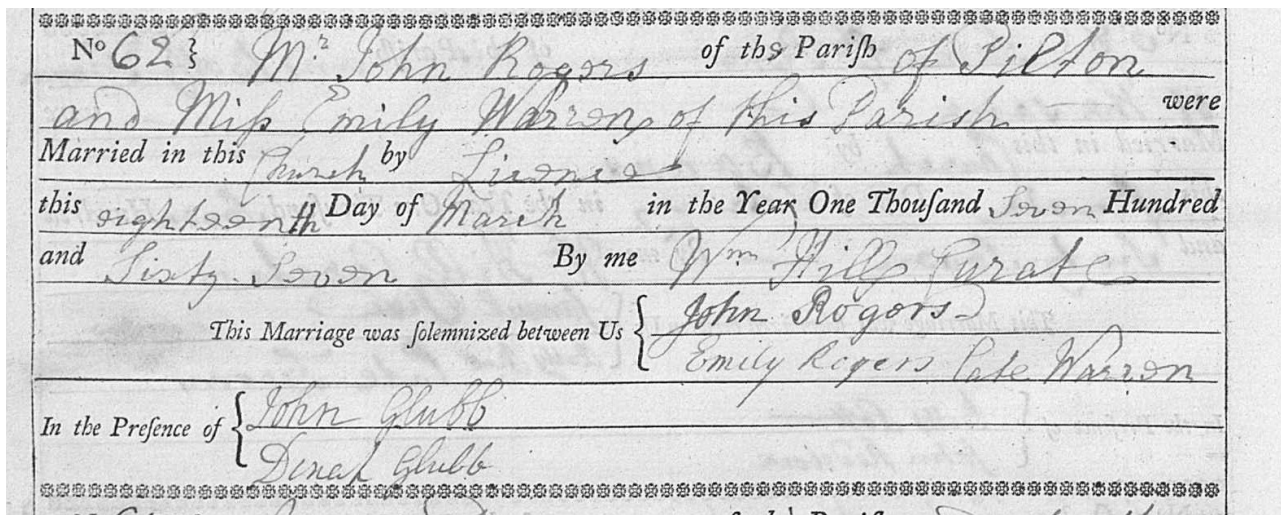 No 62} Mr John Rogers of the Pariſh of Pilton
and Miſs Emily Warren of this Parish were
Married in this Church by Licence
this eighteenth Day of March in the Year One Thouſand Seven Hundred
and Sixty Seven By me Wm Hill Curate
This Marriage was ſolemnized between Us { John Rogers
Emily Rogers late Warren
In the Preſence of { John Glubb
Dinah Glubb